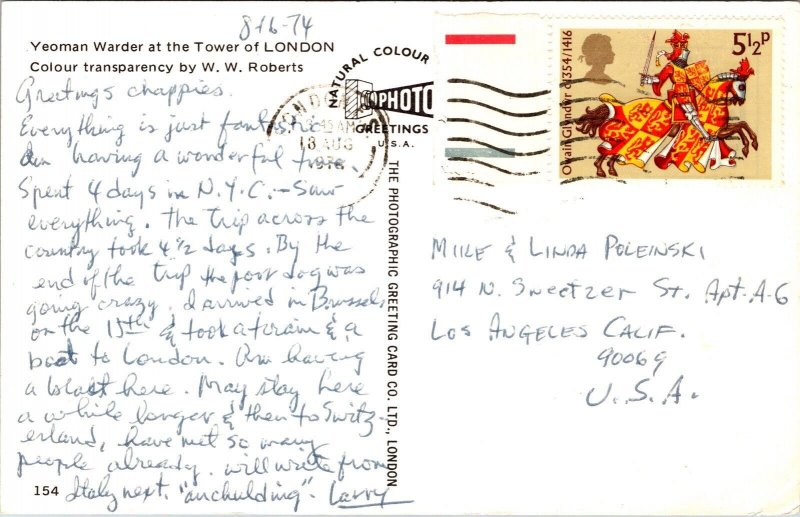 8-16-74
Yeoman Warder at the Tower of LONDON
Colour transparency by W. W. Roberts
Greetings chappies.
Everything is just fantastic
Am having a wonderful time.
Spent 4 days in N.Y.C. - Saw
everything. The trip across the
country took 4 1/2 days. By the
end of the trip the poor dog was
going crazy. I arrived in Brussels
on the 15th & took a train & a
boat to London. Am having
a blast here. May stay here
a while longer & then to Switz-
erland, have met so many
people already. will write from
Italy next. "anchulding". Larry
154
NATURAL COLOUR
PHOTO
GREETINGS
U.S.A.
18 AUG
THE PHOTOGRAPHIC GREETING CARD CO. LTD., LONDON
5½P
Owain Glyndwr c1354/1416
MIKE & LINDA POLEINSKI
914 N. Sweetzer St. Apt. A-6
LOS ANGELES CALIF.
90069
U.S.A.